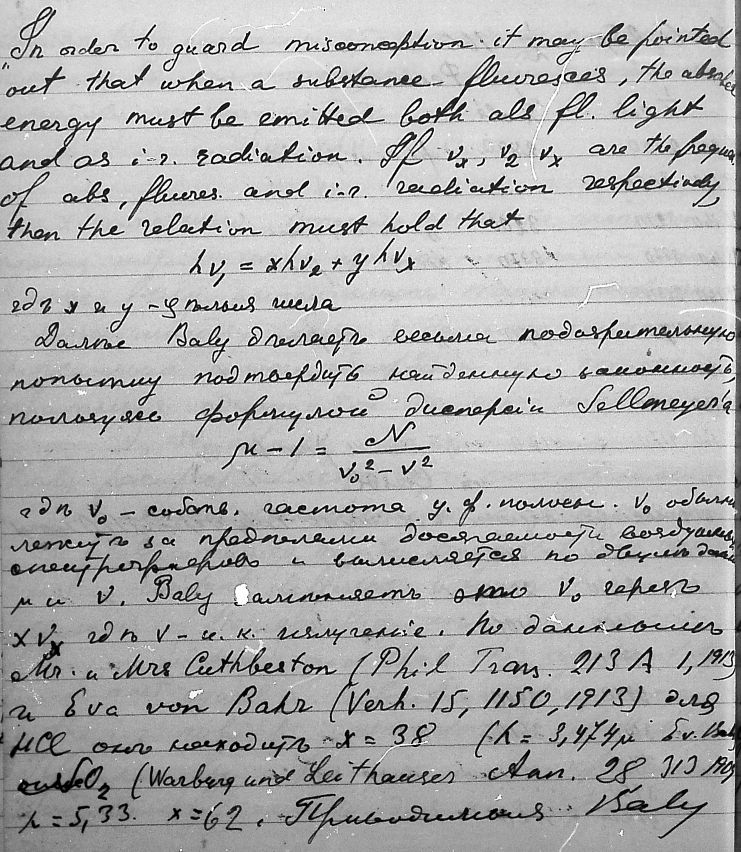 "In order to guard misconception it may be pointed
out that when a substance fluoresces, the absorbed
energy must be emitted both als fl. light
and as i-r. radiation. If νx, ν2 νx are the frequen
of abs, fluores. and i-r. readiation respectively,
then the relation must hold that
hν1 = xhν2 + yhνx
гдѣ x и y - цѣлыя числа
Далѣе Baly дѣлаетъ весьма подозрительную
попытку подтвердить найденную законность,
пользуясь формулой дисперсіи Sellmeyer'a
μ - 1 = N / (ν0² - ν²)
гдѣ ν0 - собств. частота у.ф. полосы. ν0 обычно
лежитъ за предѣлами досягаемости воздушныхъ
спектрографовъ и вычисляется по двумъ даннымъ
μ и ν. Baly замѣняетъ это ν0 черезъ
xνx гдѣ ν - и.к. излученіе. По даннымъ
Mr. и Mrs Cuthbertson (Phil Trans. 213 A 1, 1913
и Eva von Bahr (Verh. 15, 1150, 1913) для
HCl онъ находитъ x = 38 (λ = 3,474μ Ev. Bahr
SO2 (Warburg und Leithäuser Ann. 28 313 1909
λ = 5,33. x = 62. Приводимыя Baly